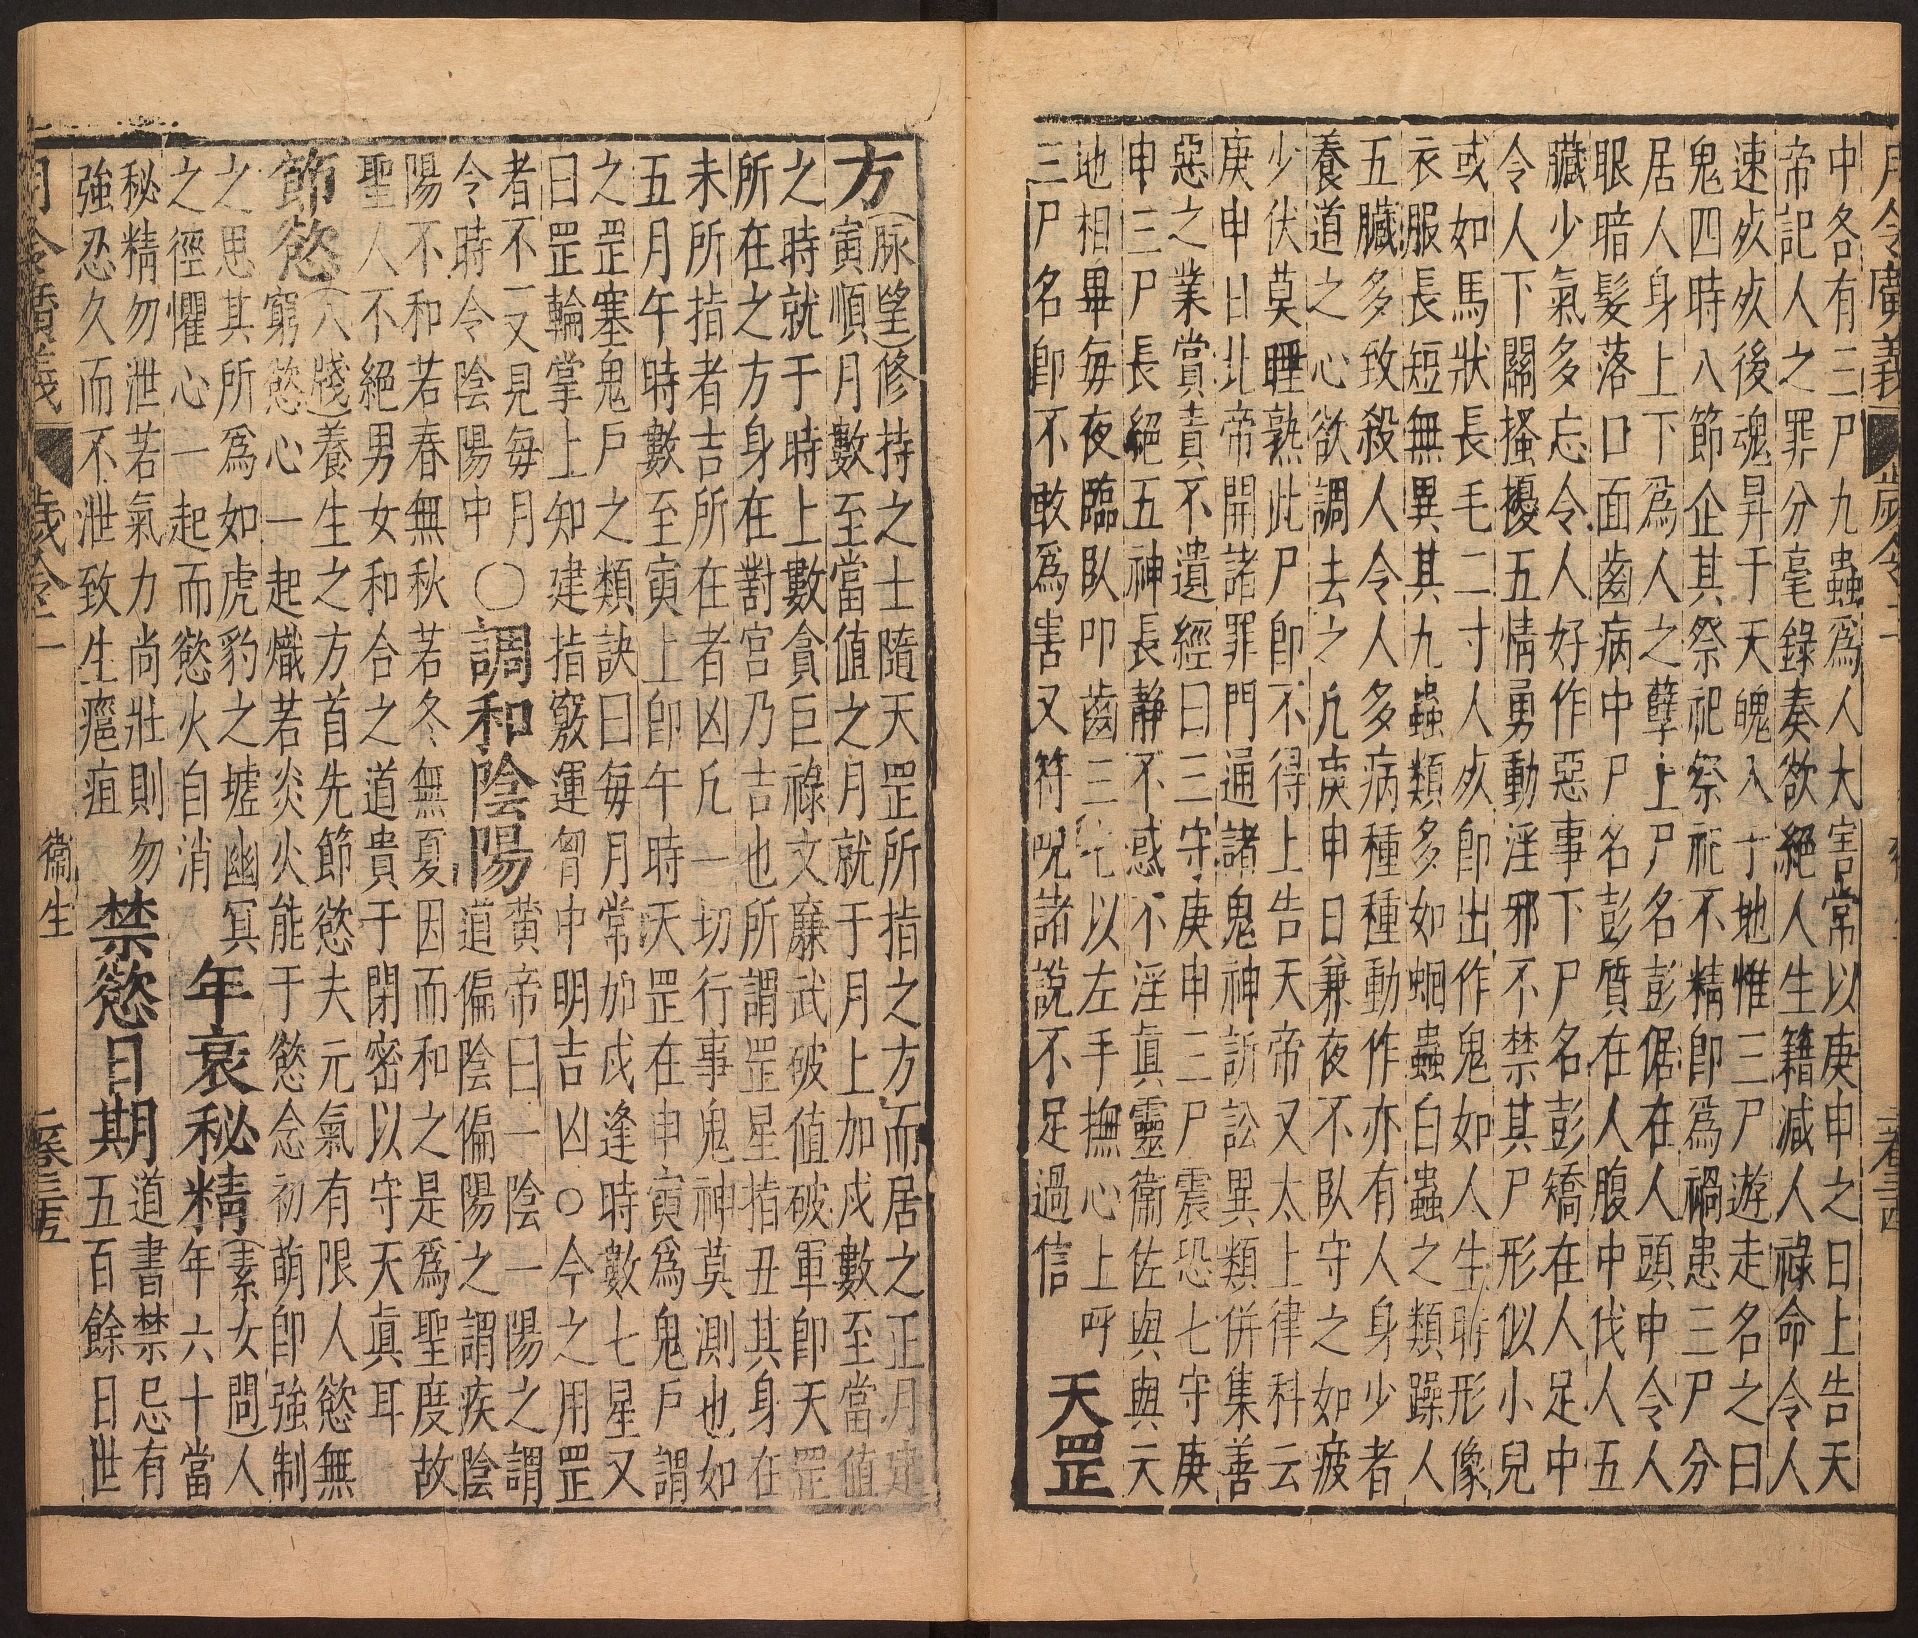 月令廣義　歲令二
中各有三尸九蟲爲人大害常以庚申之日上告天
帝記人之罪分毫錄奏欲絕人生籍減人祿命令人
速歿歿後魂昇于天魄入于地惟三尸遊走名之曰
鬼四時八節企其祭祀祭祀不精卽爲禍患三尸分
居人身上下爲人之孽上尸名彭倨在人頭中令人
眼暗髮落口面齒病中尸名彭質在人腹中伐人五
臟少氣多忘令人好作惡事下尸名彭矯在人足中
令人下關搔擾五情勇動淫邪不禁其尸形似小兒
或如馬狀長毛二寸人歿卽出作鬼如人生時形像
衣服長短無異其九蟲類多如蛔蟲白蟲之類躁人
五臟多致殺人令人多病種種動作亦有人身少者
養道之心欲調去之凢庚申日兼夜不臥守之如疲
少伏莫睡熟此尸卽不得上告天帝又太上律科云
庚申日北帝開諸罪門通諸鬼神訴訟異類併集善
惡之業賞責不遺經曰三守庚申三尸震恐七守庚
申三尸長絕五神長靜不惑不淫眞靈衞佐與與天
地相畢每夜臨臥叩齒三七以左手撫心上呼
三尸名卽不敢爲害又符呪諸說不足過信　天罡
方(脉望)修持之士隨天罡所指之方而居之正月建
寅順月數至當值之月就于月上加戌數至當值
之時就于時上數貪巨祿文廉武破值破軍卽天罡
所在之方身在對宮乃吉也所謂罡星指丑其身在
未所指者吉所在者凶凢一切行事鬼神莫測也如
五月午時數至寅上卽午時天罡在申寅爲鬼戶謂
之罡塞鬼戶之類訣曰每月常加戌逢時數七星又
曰罡輪掌上知建指竅運胷中明吉凶○今之用罡
者不一又見每月
令時令陰陽中　○調和陰陽　黃帝曰一陰一陽之謂
道偏陰偏陽之謂疾陰
陽不和若春無秋若冬無夏因而和之是爲聖度故
聖人不絕男女和合之道貴于閉密以守天眞耳
節慾(八牋)養生之方首先節慾夫元氣有限人慾無
窮慾心一起熾若炎火能于慾念初萌卽強制
之思其所爲如虎豹之墟幽冥
之徑懼心一起而慾火自消　年衰秘精(素女問)人
年六十當
秘精勿泄若氣力尚壯則勿
強忍久而不泄致生瘡疽　禁慾日期　道書禁忌有
五百餘日世
月令廣義　歲令二　衞生　二卷三十五